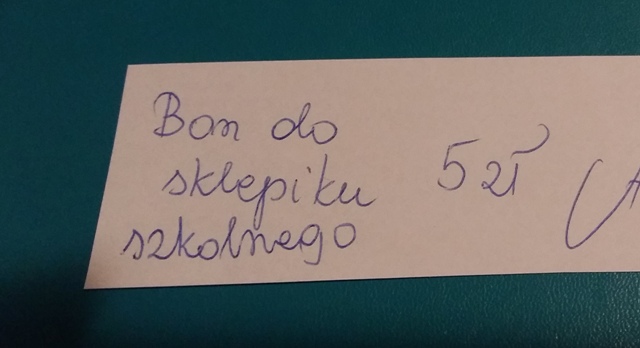 Bon do
sklepiku
szkolnego
5 zł